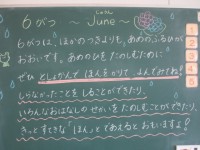 6がつ ～June～
6がつは、ほかのつきよりも、あめのふるひが
おおいです。あめのひを たのしむために
ぜひ としょかんで ほんをかりて よんでみてね!
しらなかったことを しることができたり、
いろんなおはなしの せかいを たのしむことができたり、
きっと すてきな「ほん」と であえると おもいますよ!
1
2
3
4
5